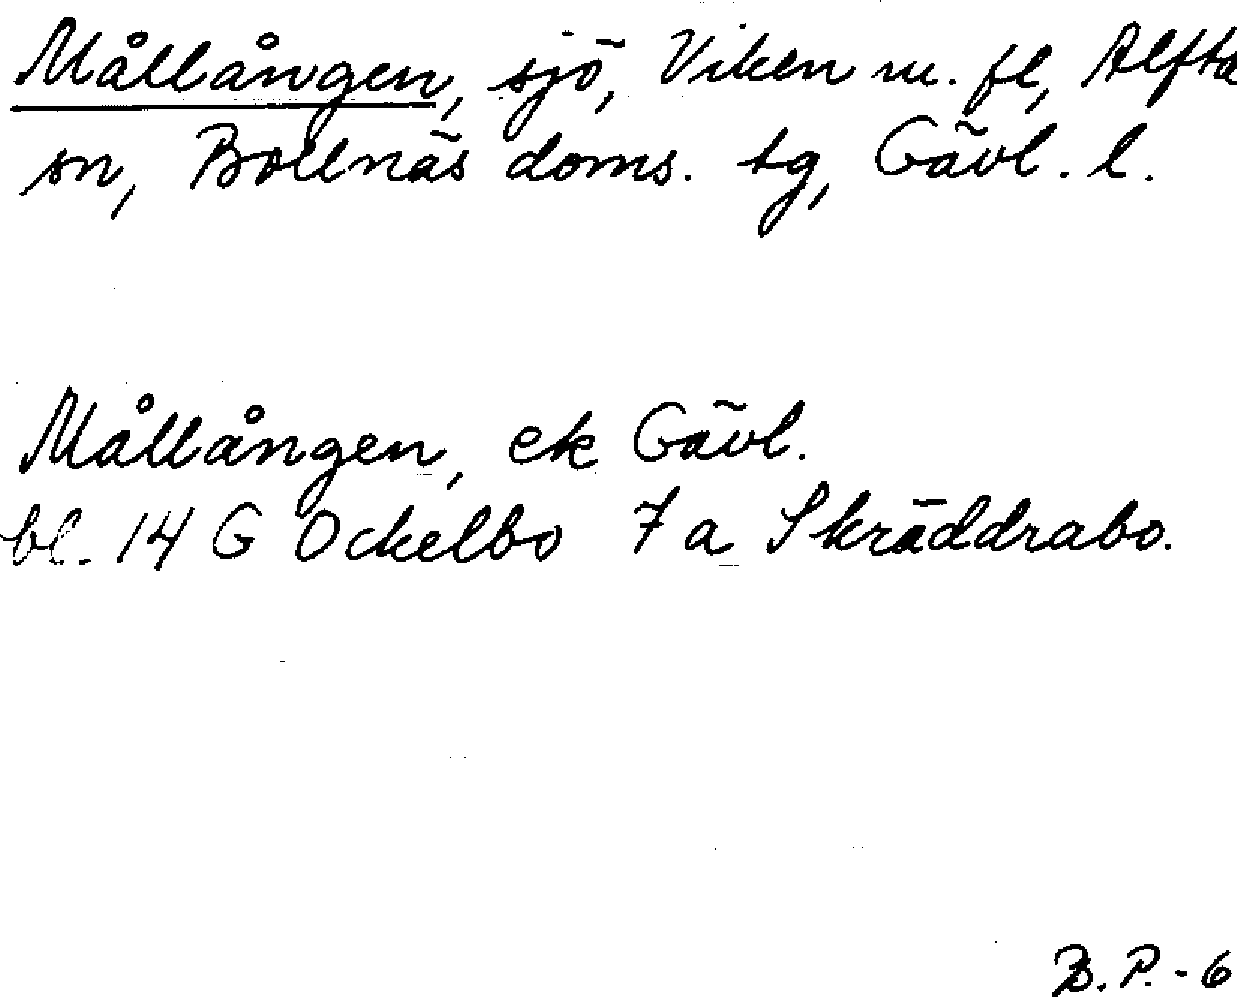 Mållången, sjö, Viken m. fl, Alfta
sn, Bollnäs doms. tg, Gävl. l.
Mållången, ek Gävl.
bl. 14 G Ockelbo 7 a Skräddrabo.
B. P. - 6